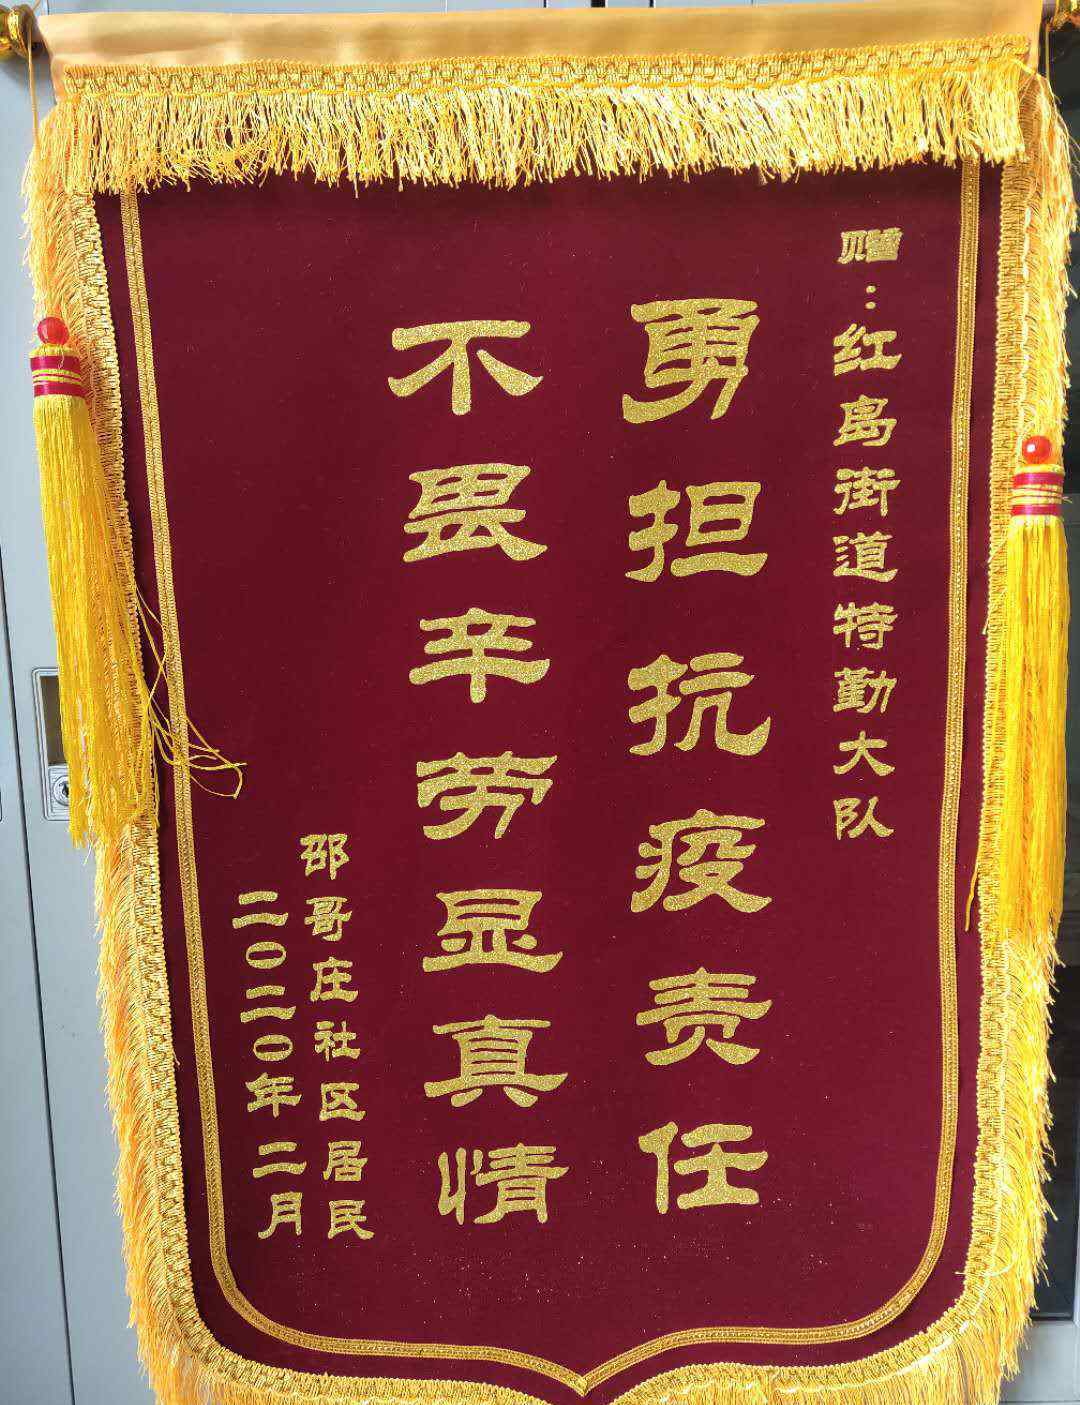 赠：红岛街道特勤大队
勇担抗疫责任
不畏辛劳显真情
邵哥庄社区居民
二〇二〇年二月